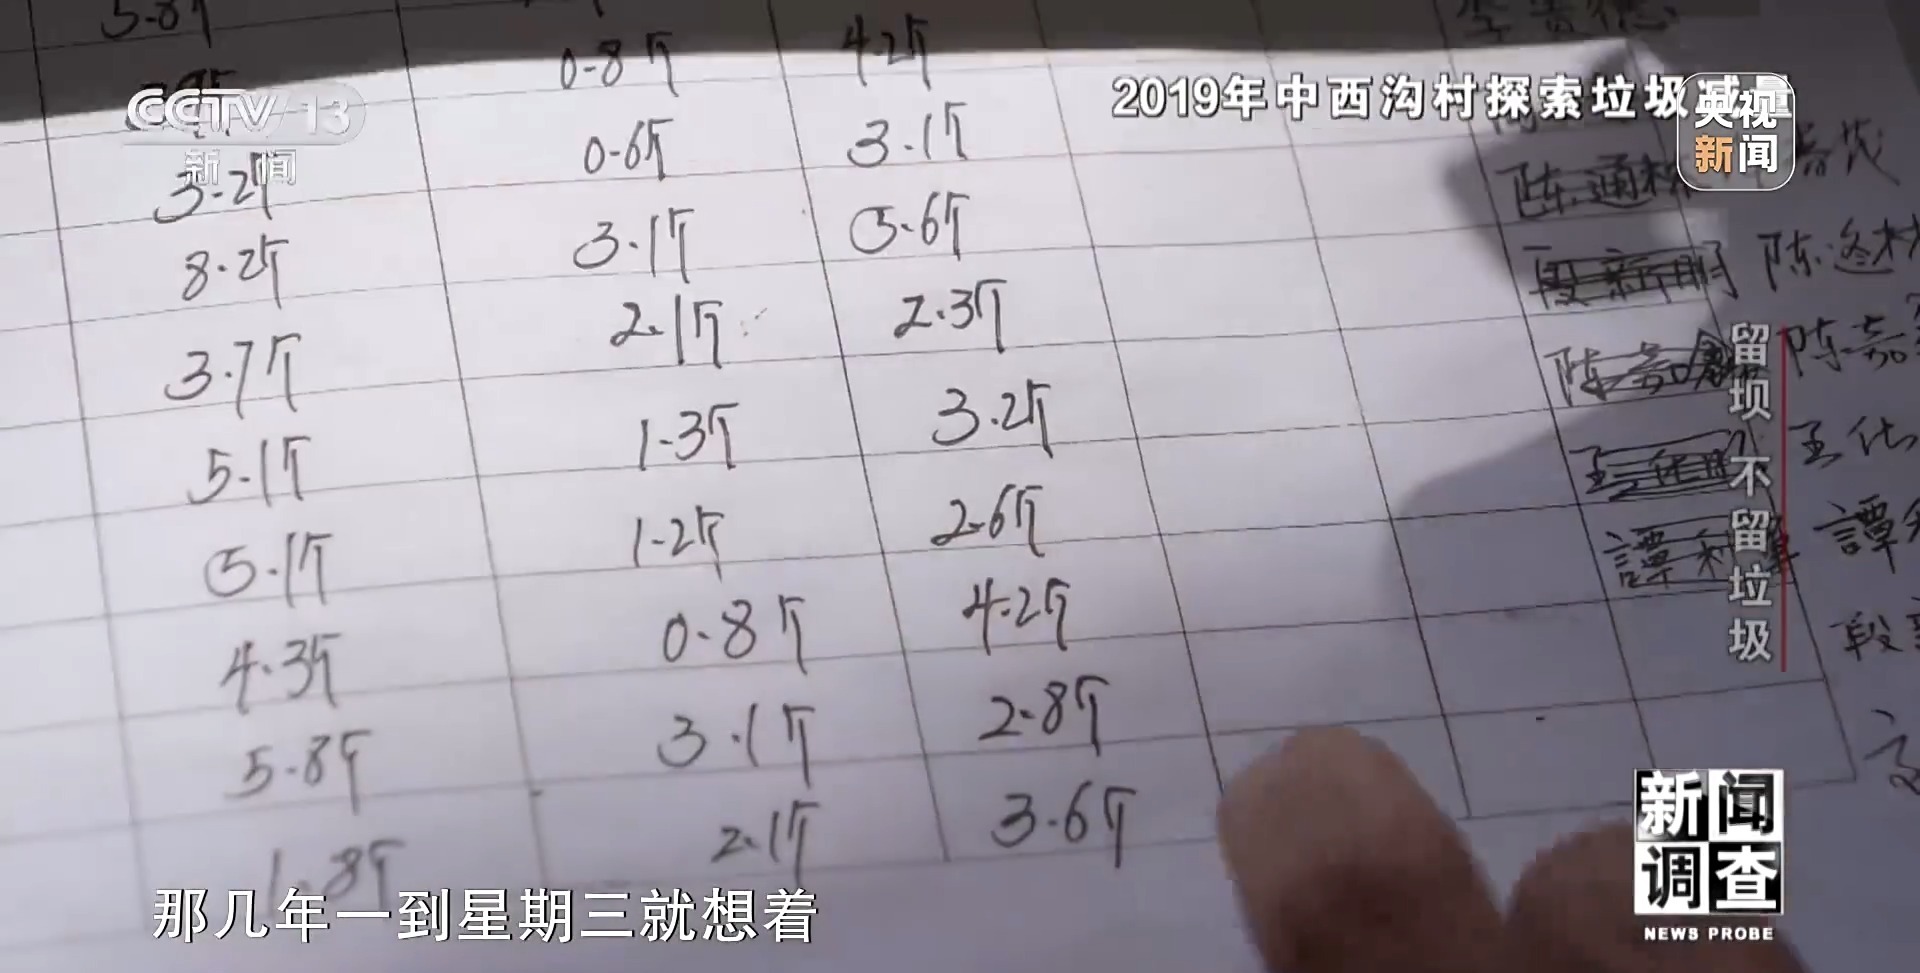 5.8斤
0.8斤 4.2斤
CCTV 13
新闻
2019年中西沟村探索垃圾减量
央视
新闻
0.6斤 3.1斤
3.2斤 3.1斤 5.6斤 陈通林
8.2斤 2.1斤 2.3斤 段新明 陈
3.7斤 1.3斤 3.2斤 陈嘉 陈嘉
5.1斤 1.2斤 2.6斤 王 王
5.1斤 0.8斤 4.2斤 譚 譚
4.3斤 3.1斤 2.8斤 段
5.8斤 2.1斤 3.6斤
1.8斤
留坝不留垃圾
那几年一到星期三就想着
新闻
调查
NEWS PROBE